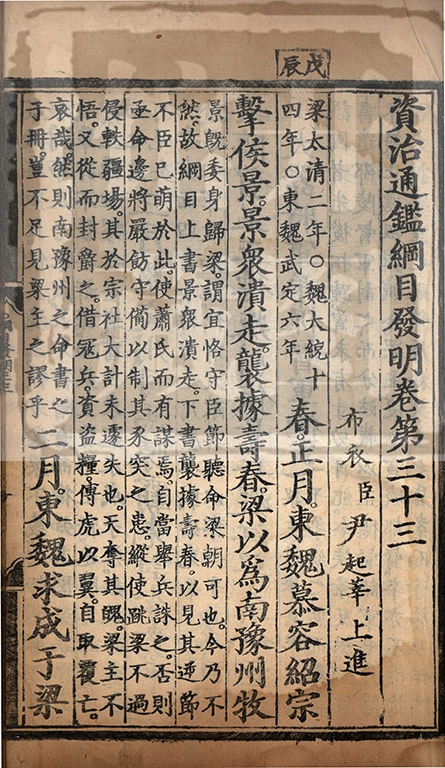 戊辰
資治通鑑綱目發明卷第三十三
布衣臣尹起莘上進
梁太清二年○魏大統十
四年○東魏武定六年
春。正月。東魏慕容紹宗
擊侯景。景衆潰走。襲據壽春。梁以爲南豫州牧
景旣委身歸梁。謂宜恪守臣節聽命梁朝可也。今乃不
然。故綱目上書景衆潰走。下書襲據壽春。以見其逆節
不臣已萌於此。使蕭氏而有謀焉。自當舉兵誅之。否則
亟命邊將嚴飭守備以制其豕突之患。縱使跳梁不過
侵軼疆場。其於宗社大計未遽失也。天奪其魄。梁主不
悟。又從而封爵之。借冦兵。資盗糧。傅虎以翼。自取覆亡。
哀哉。然則南豫州之命書之
于冊。豈不足見梁主之謬乎
二月。東魏求成于梁